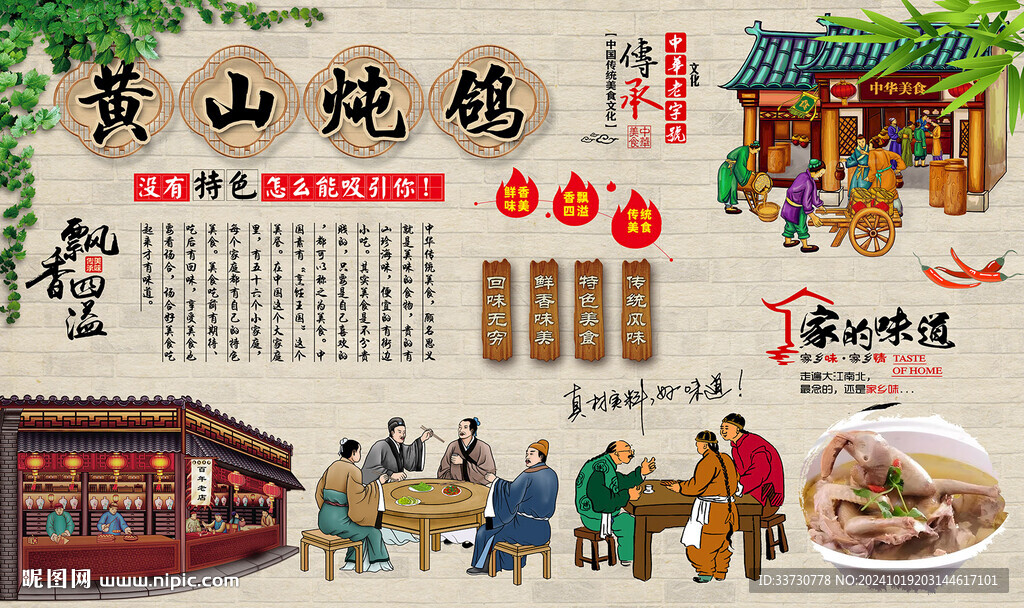 黄山炖鸽
没有特色怎么能吸引你！
飘香四溢
美味传承
中华传统美食，顾名思义
就是美味的食物，贵的有
山珍海味，便宜的有街边
小吃。其实美食是不分贵
贱的，只要是自己喜欢的
，都可以称之为美食。中
国素有“烹饪王国”这个
美誉。在中国这个大家庭
里，有五十六个小家庭，
每个家庭都有自己的特色
美食。美食吃前有期待、
吃后有回味，享受美食也
要看场合，场合好美食吃
起来才有味道。
文化
中華老字號
傳承
中華美食
【中国传统美食文化】
鲜香
味美
香飘
四溢
传统
美食
回味无穷
鲜香味美
特色美食
传统风味
中华美食
家的味道
家乡味·家乡情
TASTE
OF HOME
走遍大江南北，
最念的，还是家乡味...
真材实料，好味道！
百年老店
昵图网 www.nipic.com
ID:33730778 NO:20241019203144617101